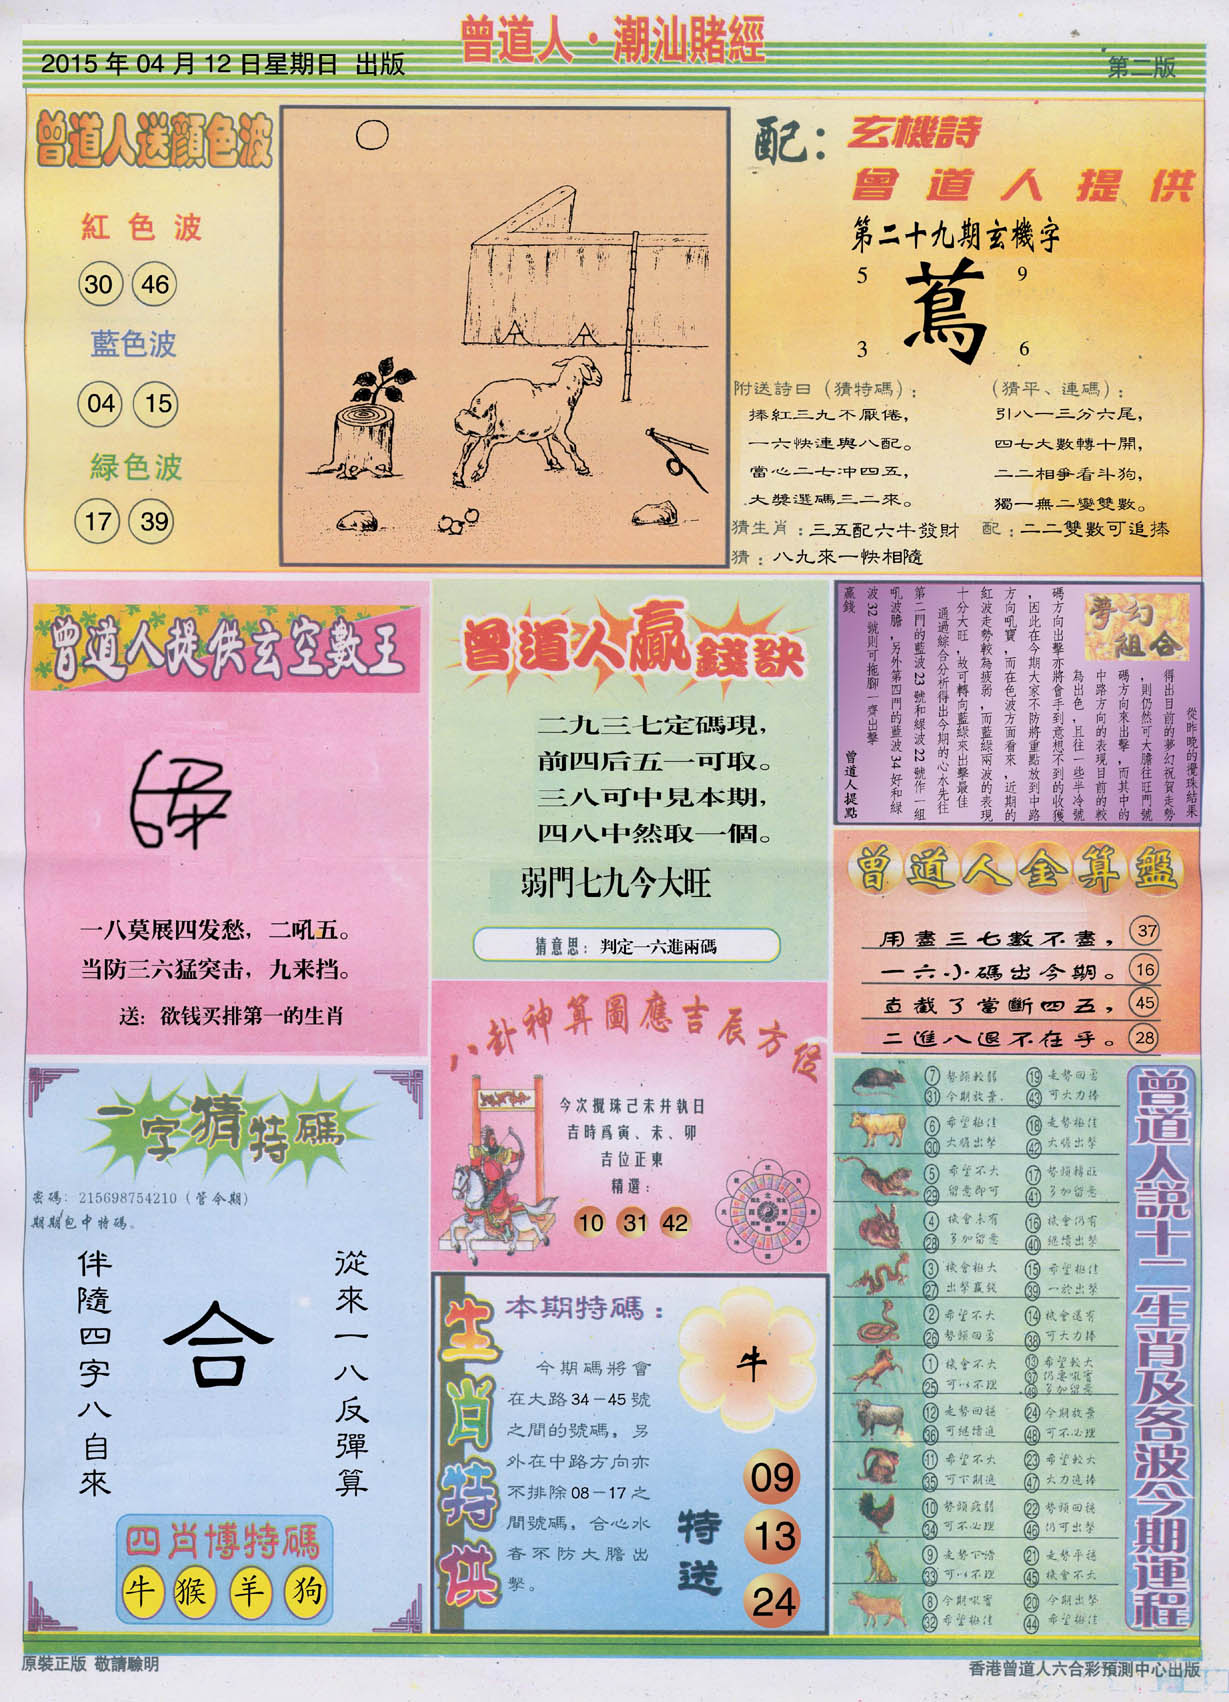 曾道人·潮汕賭經
2015年04月12日星期日 出版
第二版
曾道人送顔色波
紅色波
30 46
藍色波
04 15
緑色波
17 39
配：玄機詩
曾道人提供
第二十九期玄機字
5 9
蔦
3 6
附送詩曰（猜特碼）：
捧紅三九不厭倦，
一六快連與八配。
當心二七冲四五，
大獎選碼三二來。
（猜平、連碼）：
引八一三分六尾，
四七大數轉十開，
二二相爭看斗狗，
獨一無二變雙數。
猜生肖：三五配六牛發財
配：二二雙數可追捧
猜：八九來一快相隨
曾道人提供玄空數王
一八莫展四发愁，二吼五。
当防三六猛突击，九来挡。
送：欲钱买排第一的生肖
曾道人贏錢訣
二九三七定碼現，
前四后五一可取。
三八可中見本期，
四八中然取一個。
弱門七九今大旺
猜意思：判定一六進兩碼
夢幻組合
從昨晚的攪珠結果
得出目前的夢幻祝賀走勢
，則仍然可大膽往旺門號
碼方向來出擊，而其中的
中路方向的表現目前的較
為出色，且往一些半冷號
碼方向出擊亦將會手到意想不到的收獲
，因此在今期大家不防將重點放到中路
方向吼寶，而在色波方面看來，近期的
紅波走勢較為疲弱，而藍綠兩波的表現
十分大旺，故可轉向藍綠來出擊最佳
通過綜合分析得出今期的心水先往
第二門的藍波23號和綠波22號作一組
吼波膽，另外第四門的藍波34好和綠
波32號則可拖腳一齊出擊
贏錢
曾道人提點
曾道人金算盤
用盡三七數不盡， 37
一六小碼出今期。 16
直截了當斷四五， 45
二進八退不在乎。 28
八卦神算圖應吉辰方位
今次攪珠己未井執日
吉時爲寅、未、卯
吉位正東
精選：
10 31 42
一字猜特碼
密碼：215698754210（管今期）
期期包中特碼。
從來一八反彈算
合
伴隨四字八自來
四肖博特碼
牛 猴 羊 狗
生肖特供
本期特碼：
今期碼將會
在大路34－45號
之間的號碼，另
外在中路方向亦
不排除08－17之
間號碼，合心水
者不防大膽出
擊。
牛
特送
09
13
24
曾道人説十二生肖及各波今期運程
7 勢頭較弱 19 走勢回勇
31 今期放棄 43 可大力捧
6 希望極佳 18 走勢極佳
30 大膽出擊 42 大膽出擊
5 希望不大 17 勢頭轉旺
29 留意即可 41 多加留意
4 機會未有 16 機會仍有
28 多加留意 40 繼續出擊
3 機會極大 15 希望極佳
27 出擊贏錢 39 一於出擊
2 希望不大 14 機會還有
26 勢頭回勇 38 可大力捧
1 機會不大 13 希望較大
25 可以不理 37 仍要吸寶
49 多加留意
12 走勢回穩 24 今期放棄
36 可繼續追 48 可不必理
11 希望不大 23 希望較大
35 可下期追 47 大力追捧
10 勢頭疲弱 22 勢頭回穩
34 可不必理 46 仍可出擊
9 走勢下滑 21 走勢平穩
33 可以不理 45 機會不大
8 今期吸寶 20 今期出擊
32 希望極佳 44 希望極佳
原裝正版 敬請驗明
香港曾道人六合彩預測中心出版